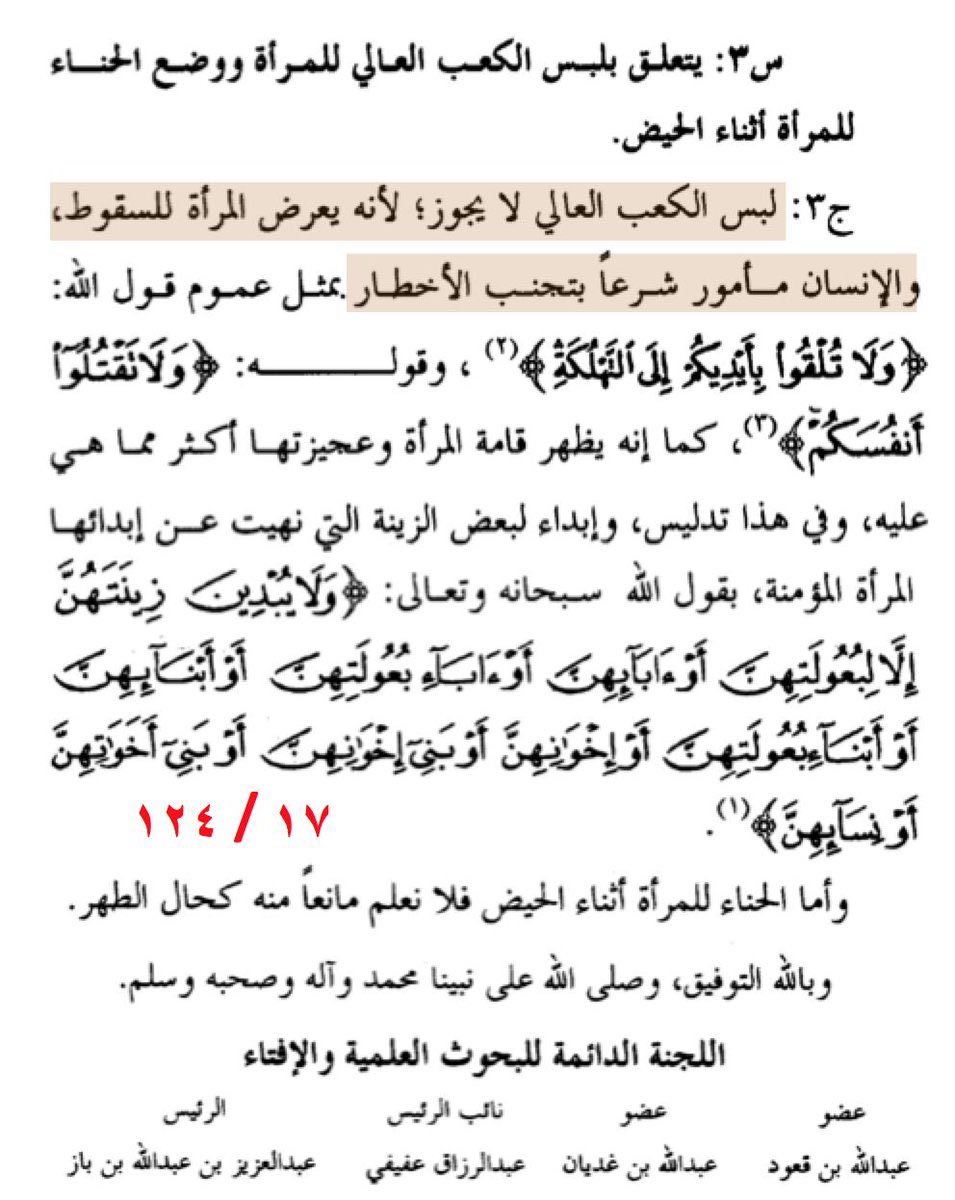 س٣: يتعلق بلبس الكعب العالي للمرأة ووضع الحناء
للمرأة أثناء الحيض.
ج٣: لبس الكعب العالي لا يجوز؛ لأنه يعرض المرأة للسقوط،
والإنسان مأمور شرعاً بتجنب الأخطار بمثل عموم قول الله:
﴿وَلَا تُلْقُوا۟ بِأَيْدِيكُمْ إِلَى ٱلتَّهْلُكَةِ﴾(٢)، وقوله: ﴿وَلَا تَقْتُلُوٓا۟
أَنفُسَكُمْ﴾(٣)، كما إنه يظهر قامة المرأة وعجيزتها أكثر مما هي
عليه، وفي هذا تدليس، وإبداء لبعض الزينة التي نهيت عن إبدائها
المرأة المؤمنة، بقول الله سبحانه وتعالى: ﴿وَلَا يُبْدِينَ زِينَتَهُنَّ
إِلَّا لِبُعُولَتِهِنَّ أَوْ ءَابَآئِهِنَّ أَوْ ءَابَآءِ بُعُولَتِهِنَّ أَوْ أَبْنَآئِهِنَّ
أَوْ أَبْنَآءِ بُعُولَتِهِنَّ أَوْ إِخْوَٰنِهِنَّ أَوْ بَنِىٓ إِخْوَٰنِهِنَّ أَوْ بَنِىٓ أَخَوَٰتِهِنَّ
أَوْ نِسَآئِهِنَّ﴾(١).
١٧ / ١٢٤
وأما الحناء للمرأة أثناء الحيض فلا نعلم مانعاً منه كحال الطهر.
وبالله التوفيق، وصلى الله على نبينا محمد وآله وصحبه وسلم.
اللجنة الدائمة للبحوث العلمية والإفتاء
عضو عضو نائب الرئيس الرئيس
عبدالله بن قعود عبدالله بن غديان عبدالرزاق عفيفي عبدالعزيز بن عبدالله بن باز